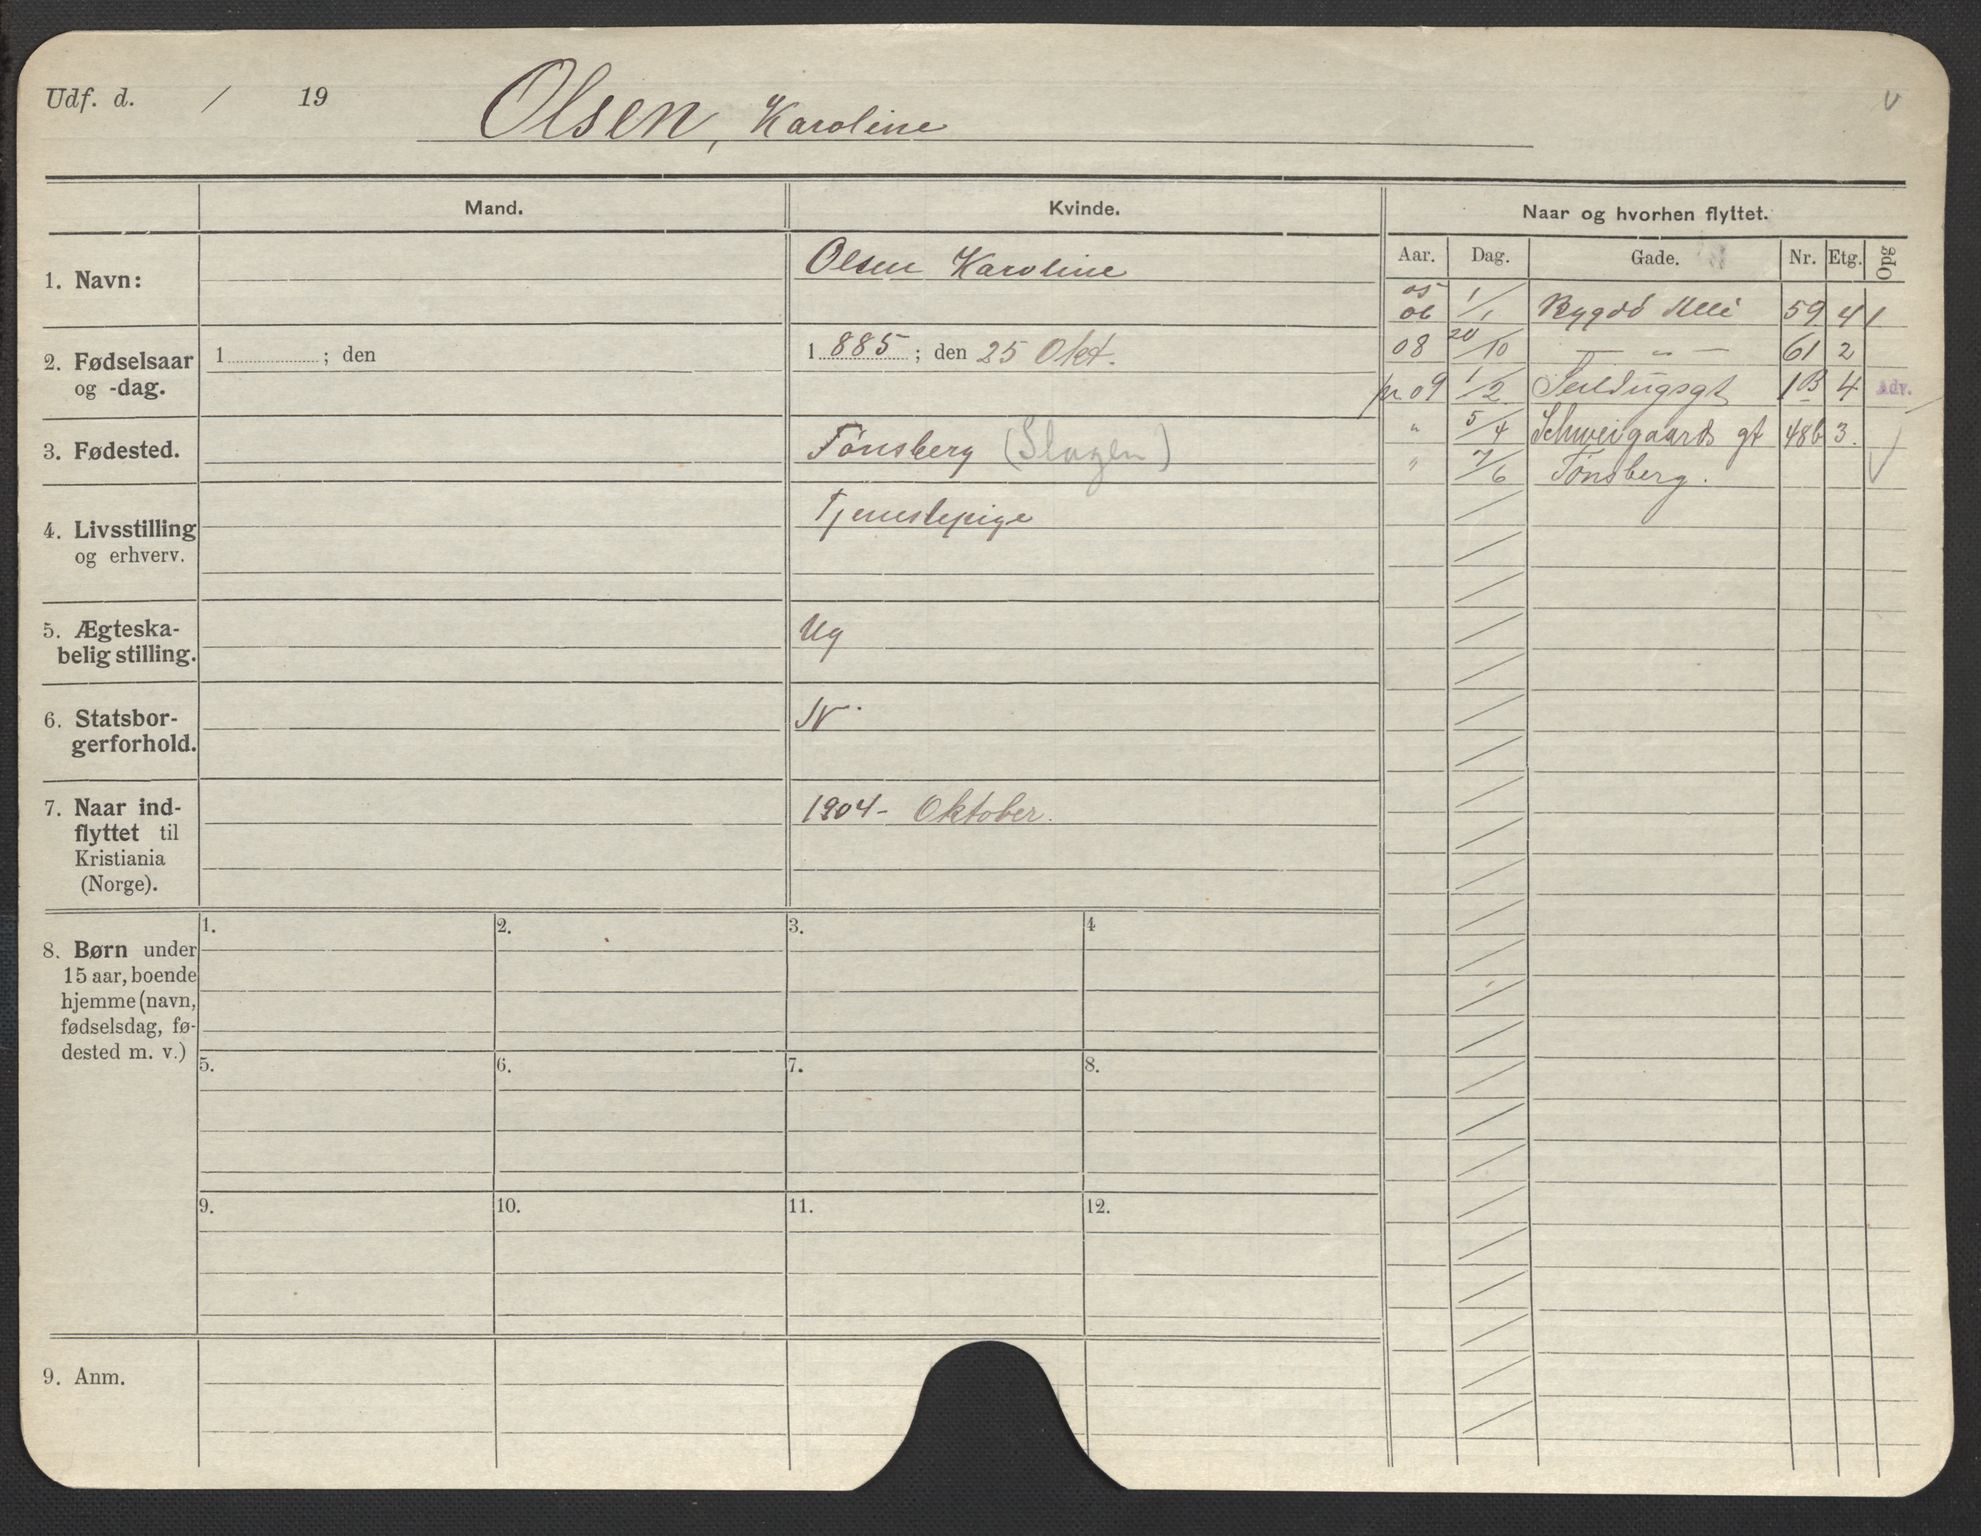 Udf. d. / 19
Olsen, Karoline
v
Mand.
Kvinde.
Naar og hvorhen flyttet.
Aar. Dag. Gade. Nr. Etg. Opg
1. Navn:
Olsen Karoline
2. Fødselsaar
og -dag.
1 ; den
1 885 ; den 25 Okt.
3. Fødested.
Tønsberg (Slagen)
4. Livsstilling
og erhverv.
Tjenestepige
5. Ægteska-
belig stilling.
Ug
6. Statsbor-
gerforhold.
N
7. Naar ind-
flyttet til
Kristiania
(Norge).
1904 - Oktober.
05
06 1/1 Bygdö Alle 59 4 1
08 20/10 — „ — 61 2
pr 09 1/2 Seildugsgt 1B 4 Adv.
" 5/4 Schweigaards gt 48b 3.
" 7/6 Tønsberg.
8. Børn under
15 aar, boende
hjemme (navn,
fødselsdag, fø-
dested m. v.)
1. 2. 3. 4
5. 6. 7. 8.
9. 10. 11. 12.
9. Anm.